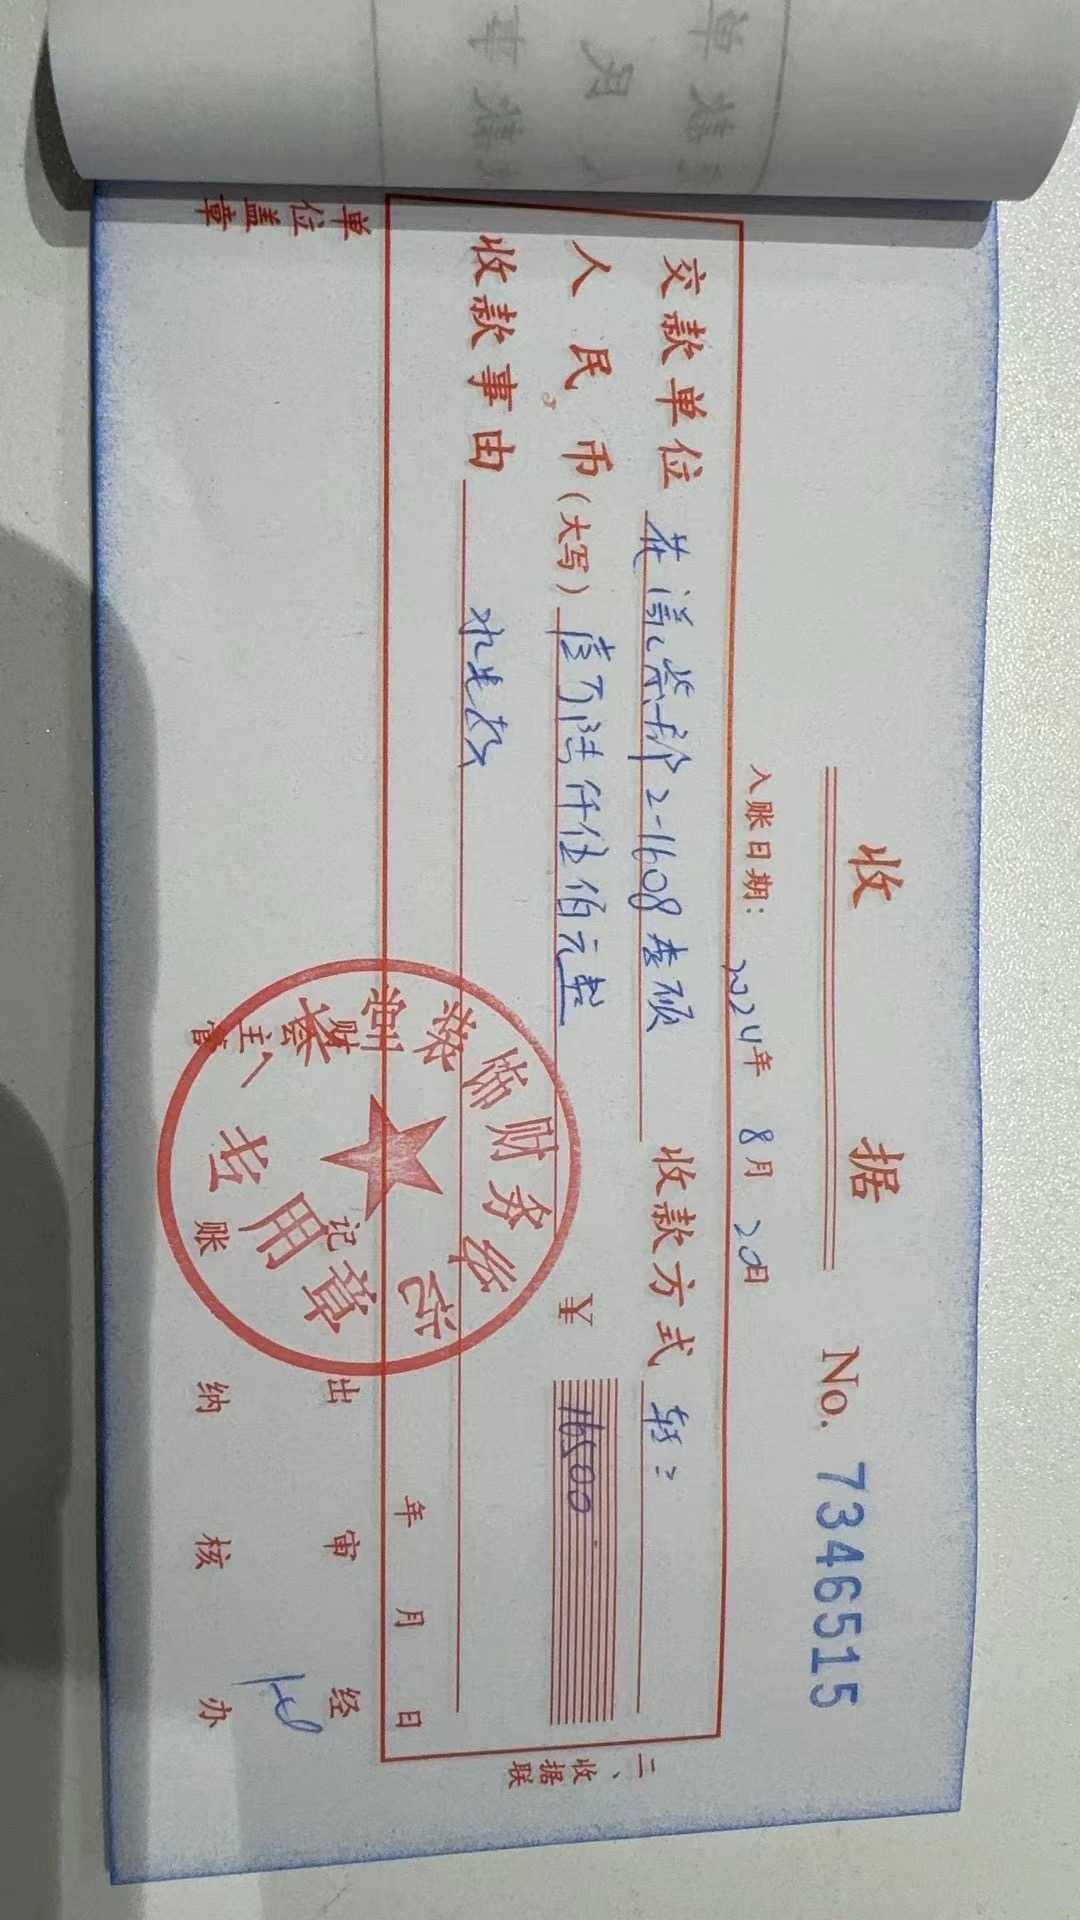 收 据
No. 7346515
入账日期: 2024年 8月 20日
交款单位 2-1608李硕 收款方式 转
人民币(大写) 壹万陆仟伍佰元整 ¥ 16500
收款事由 水电款
年 月 日
二、收据联
单位盖章 财会主管 记账 出纳 审核 经办
财务 专用章